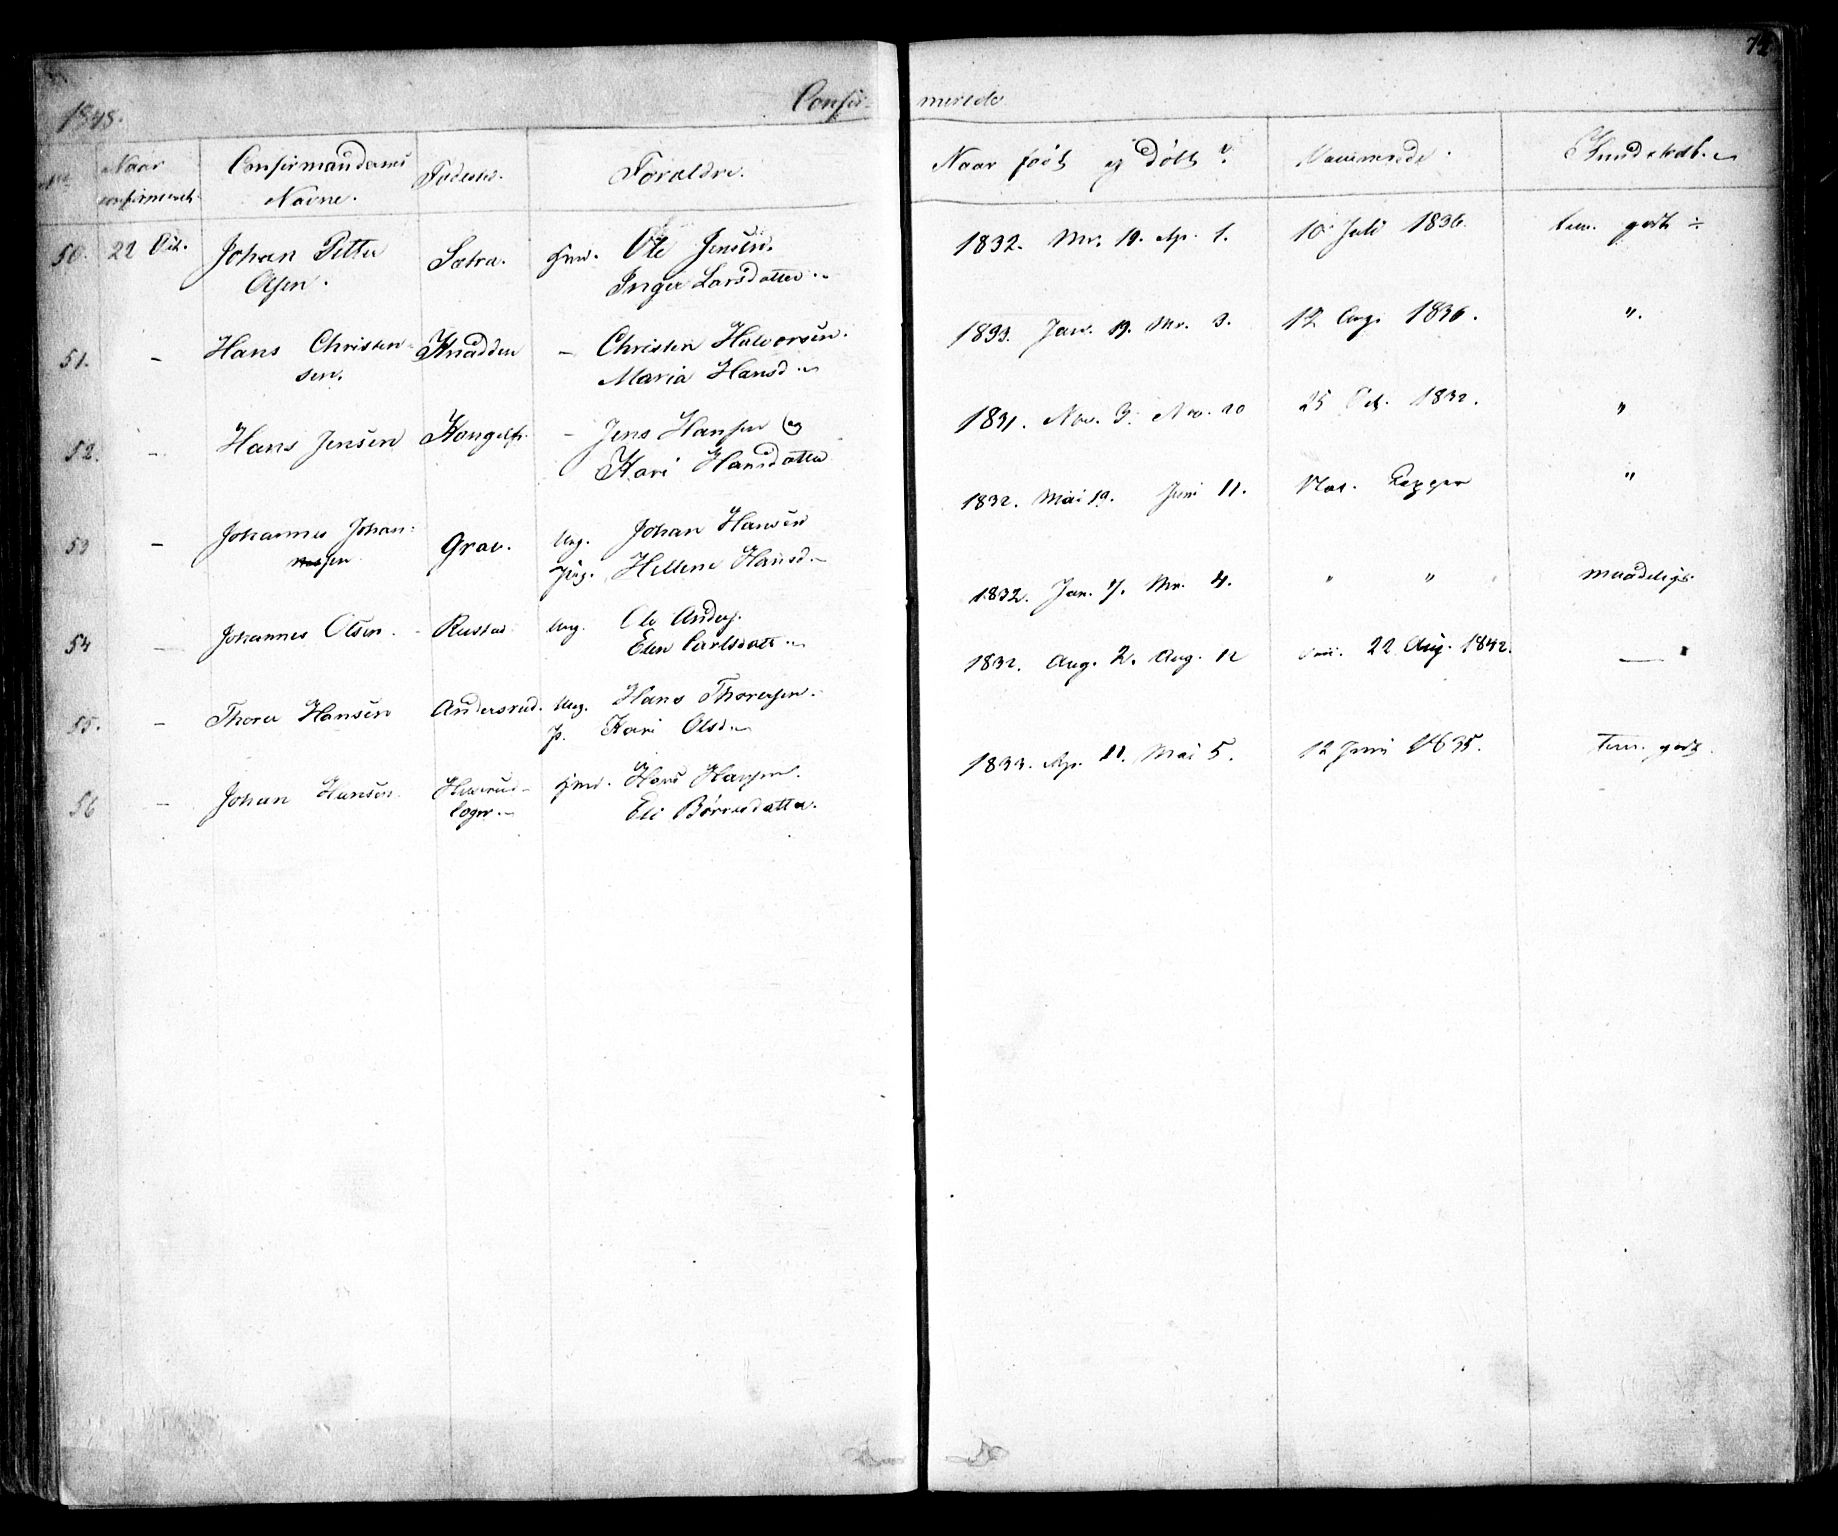 74
1848. Confir- merede
No Naar confirmeret. Confirmandernes Navne. Fødested. Forældre. Naar født og døbt? Vaccinerede. Kundskab.
50. 22 Oct. Johan Petter Sætra. Hmd. Ole Jensen. 1832. Mr. 19. Ap. 1. 10 Juli 1836. tem. godt ÷
Olsen. Inger Larsdatter.
51. – Hans Christen- Knadden – Christen Halvorsen. 1833. Jan. 9. Mr. 3. 12 Aug. 1836. "
sen. Maria Hansd.
52. – Hans Jensen – Jens Hansen og 1831. Nov. 3. Nov. 20 25 Oct. 1832. "
Kari Hansdatter
53 – Johannes Johan- Grav. Ung. Johan Hansen 1832. Mai 10. Juni 11. Nat. Kopper "
sen Pig. Hellene Hansd.
54 – Johannes Olsen. Rustad. Ung. Ole Anders. 1832. Jan. 7. Mr. 4. " " maadelig.
Elen Carlsdatt.
55. – Thorer Hansen Andersrud. Ung. Hans Thoresen. 1832. Aug. 2. Aug. 12 22 Aug. 1842. —
P. Kari Olsd.
56 – Johan Hansen Hmd. Hans Hansen. 1833. Ap. 11. Mai 5. 12 Juni 1835. Tem. godt.
Eli Børresdatter.